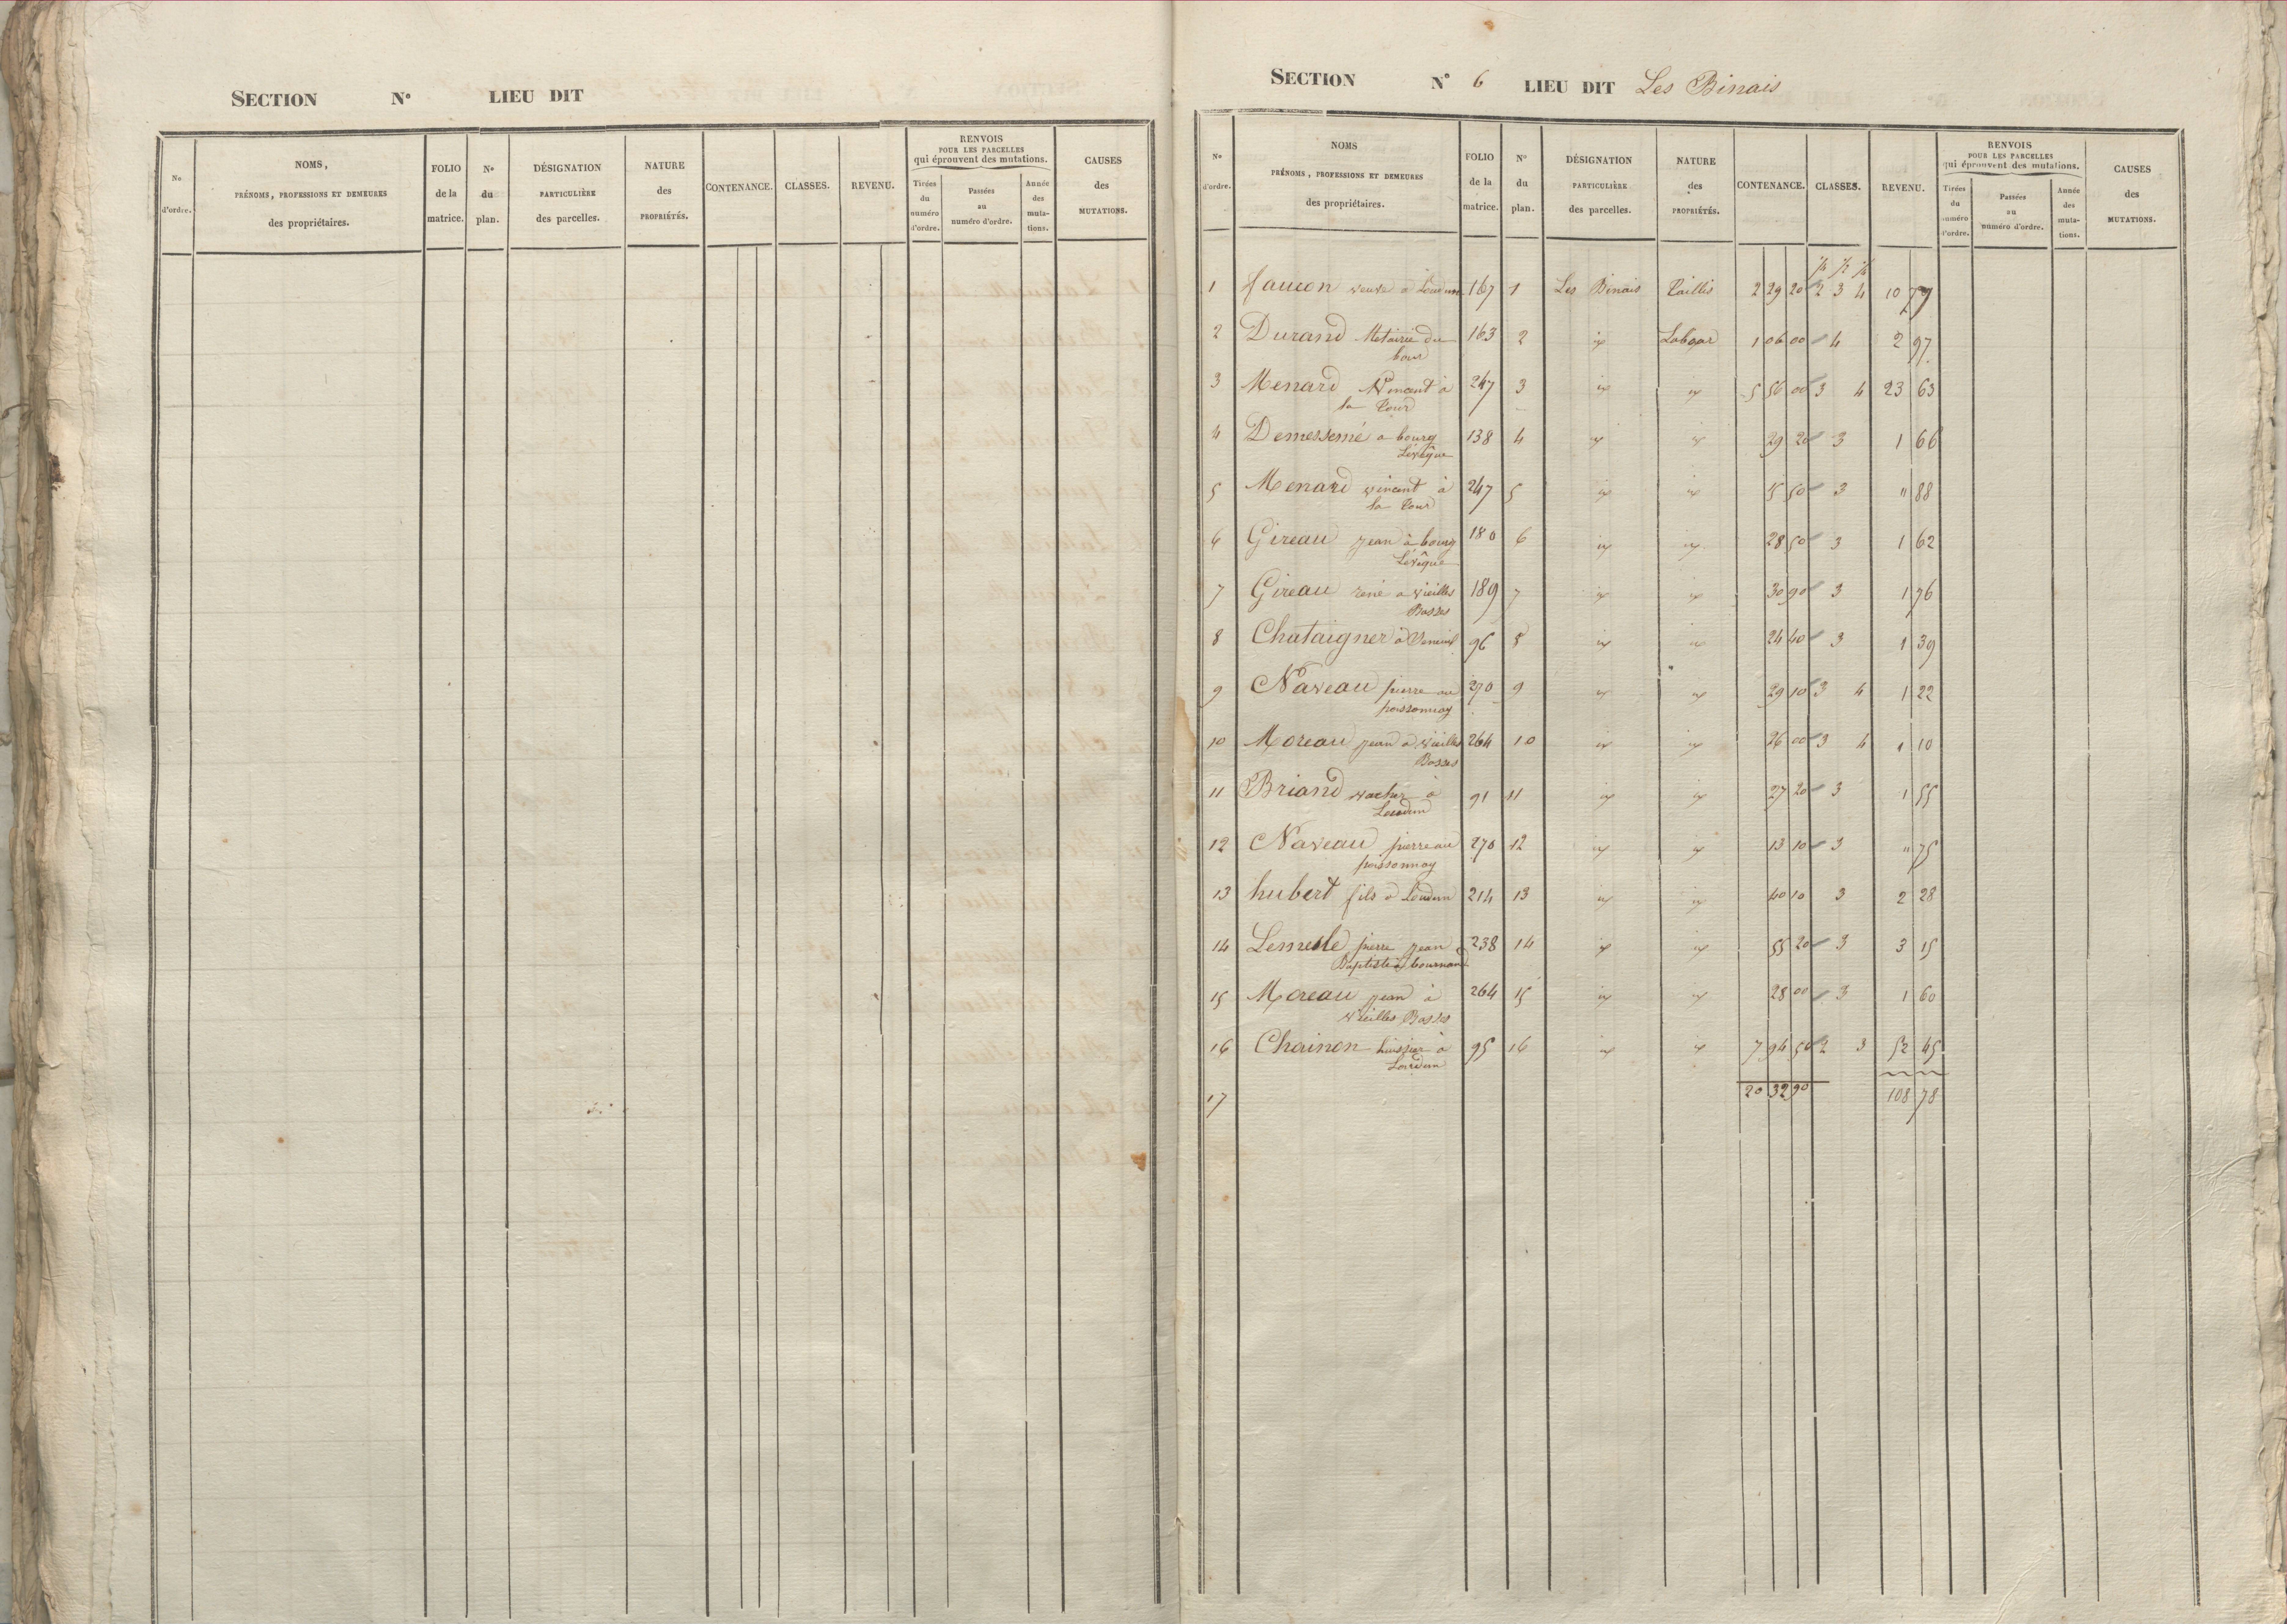 SECTION N° LIEU DIT
No d'ordre.
NOMS,
PRÉNOMS, PROFESSIONS ET DEMEURES
des propriétaires.
FOLIO de la matrice.
No du plan.
DÉSIGNATION
PARTICULIÈRE
des parcelles.
NATURE
des
PROPRIÉTÉS.
CONTENANCE.
CLASSES.
REVENU.
RENVOIS
POUR LES PARCELLES
qui éprouvent des mutations.
Tirées du numéro d'ordre.
Passées au numéro d'ordre.
Année des muta-tions.
CAUSES
des
MUTATIONS.
SECTION N° 6 LIEU DIT Les Binais
No d'ordre.
NOMS
PRÉNOMS, PROFESSIONS ET DEMEURES
des propriétaires.
FOLIO de la matrice.
No du plan.
DÉSIGNATION
PARTICULIÈRE
des parcelles.
NATURE
des
PROPRIÉTÉS.
CONTENANCE.
CLASSES.
REVENU.
RENVOIS
POUR LES PARCELLES
qui éprouvent des mutations.
Tirées du numéro d'ordre.
Passées au numéro d'ordre.
Année des muta-tions.
CAUSES
des
MUTATIONS.
1 faucon veuve à Loudun 167 1 Les Binais Taillis 2 29 20 2 3 4 10 77
2 Durand Metairie du 163 2 Labour 1 06 00 4 2 97
bour
3 Menard Vincent à 247 3 5 56 00 3 4 23 63
la Tour
4 Demessemé a bourg 138 4 29 20 3 1 66
Lévêque
5 Menard vincent à 247 5 15 50 3 " 88
la Tour
6 Gireau jean à bourg 180 6 28 50 3 1 62
Lévêque
7 Gireau rené a vieilles 189 7 30 90 3 1 76
Bosses
8 Chataigner à 96 8 24 40 3 1 39
9 Naveau pierre au 270 9 29 10 3 4 1 22
poissonnay
10 Moreau jean à vieilles 264 10 26 00 3 4 1 10
Bosses
11 Briand à 91 11 27 20 3 1 55
Loudun
12 Naveau pierre au 270 12 13 10 3 " 75
poissonnay
13 hubert fils à Loudun 214 13 40 10 3 2 28
14 Lemesle pierre jean 238 14 55 20 3 3 15
Baptiste à bournand
15 Moreau jean à 264 15 28 00 3 1 60
vieilles Bosses
16 Chainon huissier à 95 16 7 94 50 2 3 52 45
Loudun
17 20 32 90 108 78